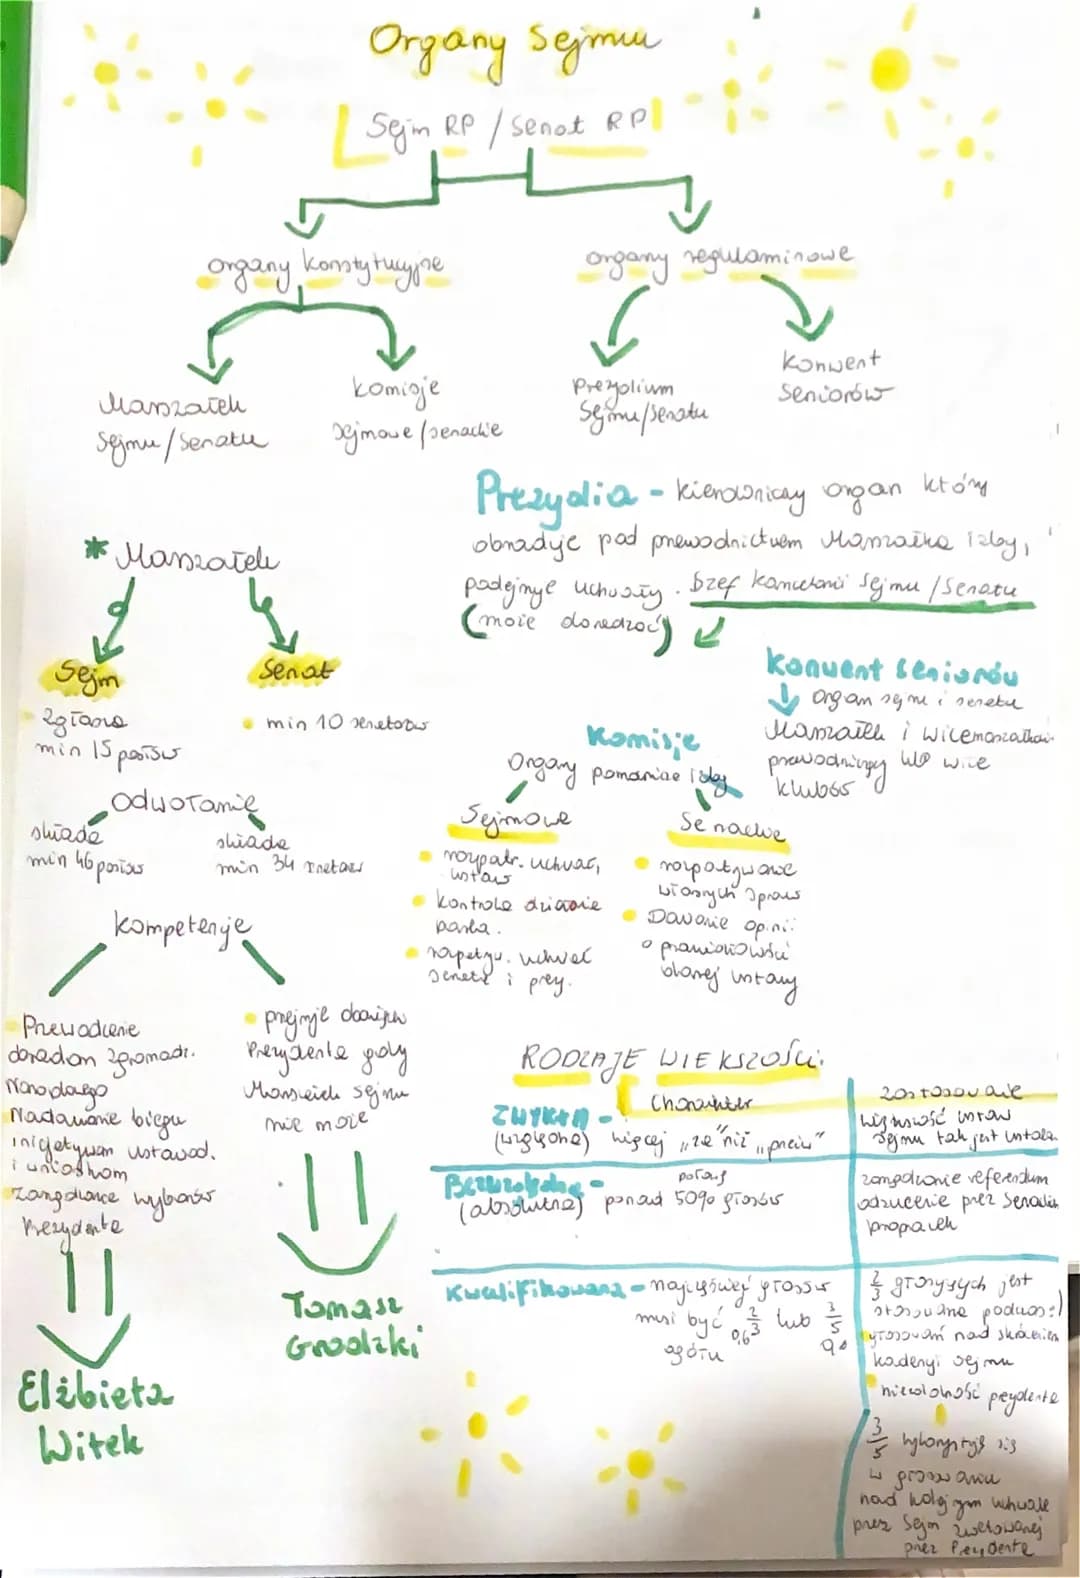 Organy Sejmu
Sejm RP / Senat RP
organy konstytucyjne
organy regulaminowe
Marszałek
Sejmu / Senatu
komisje
sejmowe / senackie
Prezydium
Sejmu/Senatu
Konwent
Seniorów
Prezydia - kierowniczy organ który
obraduje pod przewodnictwem Marszałka izby,
podejmuje uchwały. Szef kancelarii Sejmu / Senatu
(może doradzać)
* Marszałek
Sejm
Zgłasza
min 15 posłów
Senat
min 10 senatorów
odwołanie
składa
min 46 posłów
składa
min 34
Konwent seniorów
organ sejmu i senatu
Marszałek i wicemarszałkowie
przewodniczący lub wice
klubów
Komisje
Organy pomocnicze izby
Sejmowe
rozpatr. uchwał,
ustaw
kontrola
senatu i prezy.
Senackie
rozpatrywanie
własnych spraw
Dawanie opinii
o
danej ustawy
kompetencje
Przewodzenie
obradom zgromadz.
Narodowego
Nadawanie biegu
inicjatywom ustawod.
i wnioskom
zarządzanie wyborów
Prezydenta
przejmuje obowiązki
Prezydenta gdy
Marszałek sejmu
nie może
Elżbieta
Witek
Tomasz
Grodzki
RODZAJE WIĘKSZOŚCI:
Charakter
zastosowanie
ZWYKŁA -
(względna) więcej „za" niż „przeciw"
większość ustaw
Sejmu tak jest ustala.
Bezwzględna -
(absolutna) ponad 50% głosów
zarządzanie referendum
odrzucenie przez Senackich
poprawek
Kwalifikowana - najczęściej głosów
musi być 2/3 lub 3/5
0,6
ogółu
2/3 głosujących jest
stosowane podczas:
głosowań nad skróceniem
kadencji sejmu
prezydenta
3/5 wykorzystuję się
w głosowaniu
nad kolejnym uchwale
przez Sejm zwetowanej
przez Prezydenta